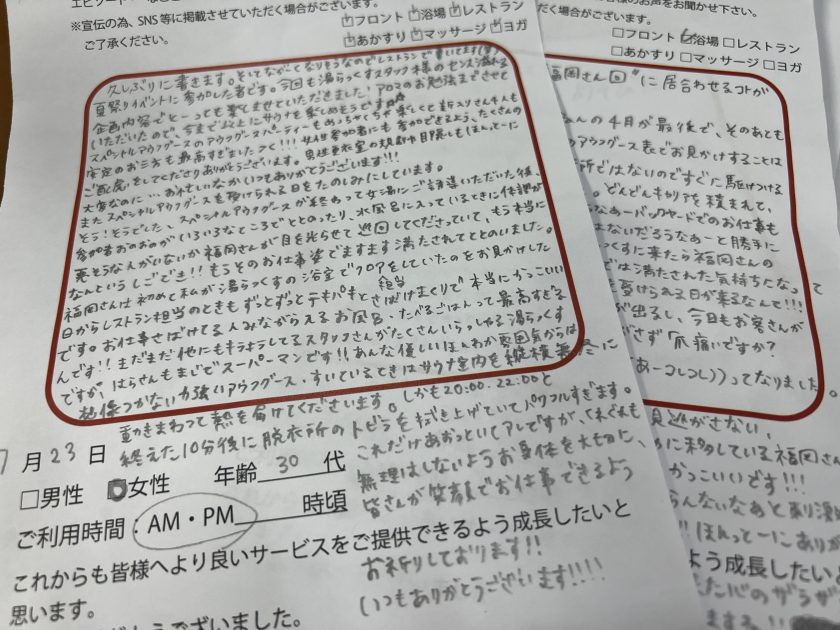 ※宣伝の為、SNS等に掲載させていただく場合がございます。
ご了承ください。
☑フロント ☑浴場 ☑レストラン
☑あかすり ☑マッサージ ☑ヨガ
久しぶりに書きます。そしてながくてなりそうなのでレストランで書いてます(笑)
夏祭りイベントに参加した者です。今回も湯らっくすスタッフ様のセンス溢れる
企画内容でとーっても楽しませていただきました! アロマのお勉強までさせて
いただいたので、今まで以上にサウナを楽しめそうです
スペシャルアウフグースのアウフグースパーティーもめっちゃくちゃ楽しくて
安定のお三方も最高すぎましたっ!!! 女性参加者にも参加できるよう、たくさんの
ご配慮をしてくださりありがとうございます。男性更衣室の規制や目隠しもほんとーに
大変なのに…おれしいなかいつもありがとうございます!!!
またスペシャルアウフグースを受けられる日をたのしみにしています。
そう!そうでした、スペシャルアウフグースが終わって女湯にご誘導いただいた後、
参加者おのおのがいろいろなところでととのったり、水風呂に入っているときに体調が
悪そうな人がいないか福岡さんが目を光らせて巡回してくださっていて、もう本当に
なんというしごでき!! もうそのお仕事姿でますます満たされてととのいました。
福岡さんは初めて私が湯らっくすの浴室でフロアをしていたのをお見かけした
日からレストラン担当のときもずっとずっとテキパキと担当さばけまくりで本当にかっこいい
です。お仕事さばけてる人みながらえるお風呂、たべるごはんって最高すぎる
んです!! まだまだ他にもキラキラしてるスタッフさんがたくさんいらっしゃる湯らっくす
ですが、はらさんもまじでスーパーマンです!! あんな優しいほんわか雰囲気からは
想像つかない力強いアウフグース、すいているときはサウナ室内を縦横無尽に
動きまわって熱を届けてくださいます。しかも20:00、22:00と
終えた10分後に脱衣所のトビラを拭き上げていてパワフルすぎます。
これだけあおっといてアレですが、くれぐれも
無理はしないようお身体を大切に、
皆さんが笑顔でお仕事できるよう
お祈りしております!!
いつもありがとうございます!!!!
7月23日
□男性 ■女性 年齢 30 代
ご利用時間:AM・PM 時頃
これからも皆様へより良いサービスをご提供できるよう成長したいと
思います。
ございました。
お声をお聞かせ下さい。
がございます。
□フロント ☑浴場 □レストラン
□あかすり □マッサージ □ヨガ
福岡さん回"に居合わせるコトが
んの4月が最後で、そのあとも
アウフグース表でお見かけすることは
所ではないのですぐに駆けつける
。どんどんキャリアを積まれて、
なぁーバックヤードでのお仕事も
はないだろうなぁーと勝手に
っくすに来たら福岡さんの
では満たされた気持ちになって
を受けられる日が来るなんて!!!
が出るし、今日もお客さんが
がさず「爪痛いですか?
あーコレコレ))ってなりました。
見逃がさない、
に移している福岡さん
かっこいいです!!!
らんないなあと
!! ほんっとーにありが
よう成長したい